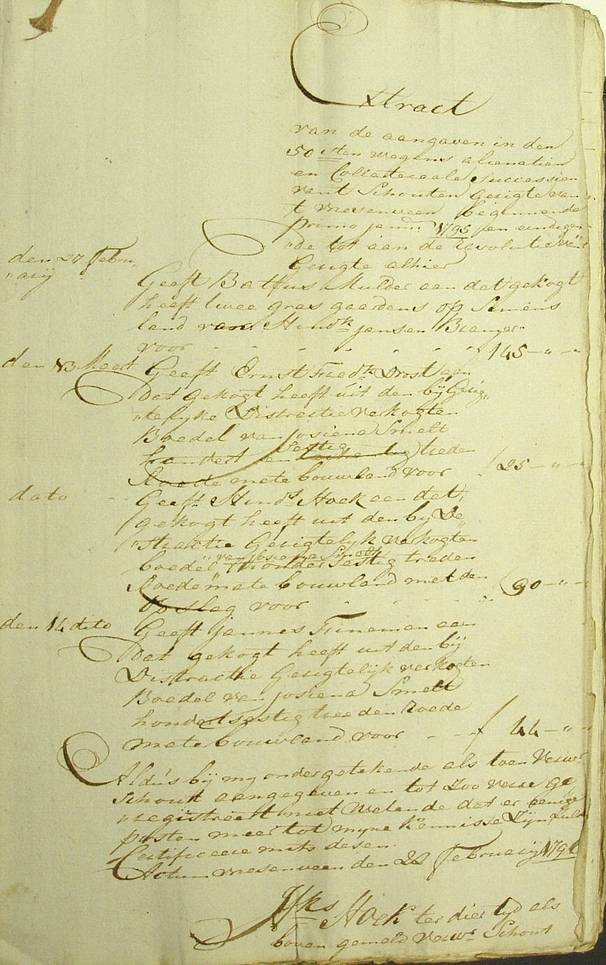 Extract
van de aangaven in den
50 sten wegens alienatien
en Collaterale Succession
vant Schouten Gerigte van
't vriesenveen beginnende
primo janu: 1795 en eindigen
de tot aan de revolutie van't
Gerigte alhier
den 27 Febru
arij
Geeft Bartus Mulder aan dat gekogt
heeft twee gras gaardens op Simens
land van Hindk jansen Bramer
voor 145 - " - "
den 13 Meert Geeft Ernst Fredk Drost aan
dat gekogt heeft uit den bij Gerig
telyke Distractie verkogten
Boedel van Josiena Smelt
hondert sestig treden
Roede mate bouwland voor 25 - " - "
dato Geeft Hindk Hoek aan dat
gekogt heeft uit den bij De
stractie Gerigtelyk verkogten
boedel van Josiena Smelt hondert sestig treden
Roede mate bouwland met den
opslag voor 90 - " -
den 14 dito Geeft jannes Tuneman aan
dat gekogt heeft uit den bij
Distractie Gerigtelijk verkogten
Boedel van Josiena Smelt
hondert sestig treeden Roede
mate bouwland voor - - ƒ 44 - " - "
Aldus bij my ondergetekende als toen Verwr
Schout aangegeven en tot zoo verre ge
registreert met Wetende dat er eenige
posten meer tot myne kennisse zyn
Certificere mits desen
Actum vriesenveen den 22 Februarij 179
Hk Hoek ter dier tyd als
boven gemeld verwr Schout